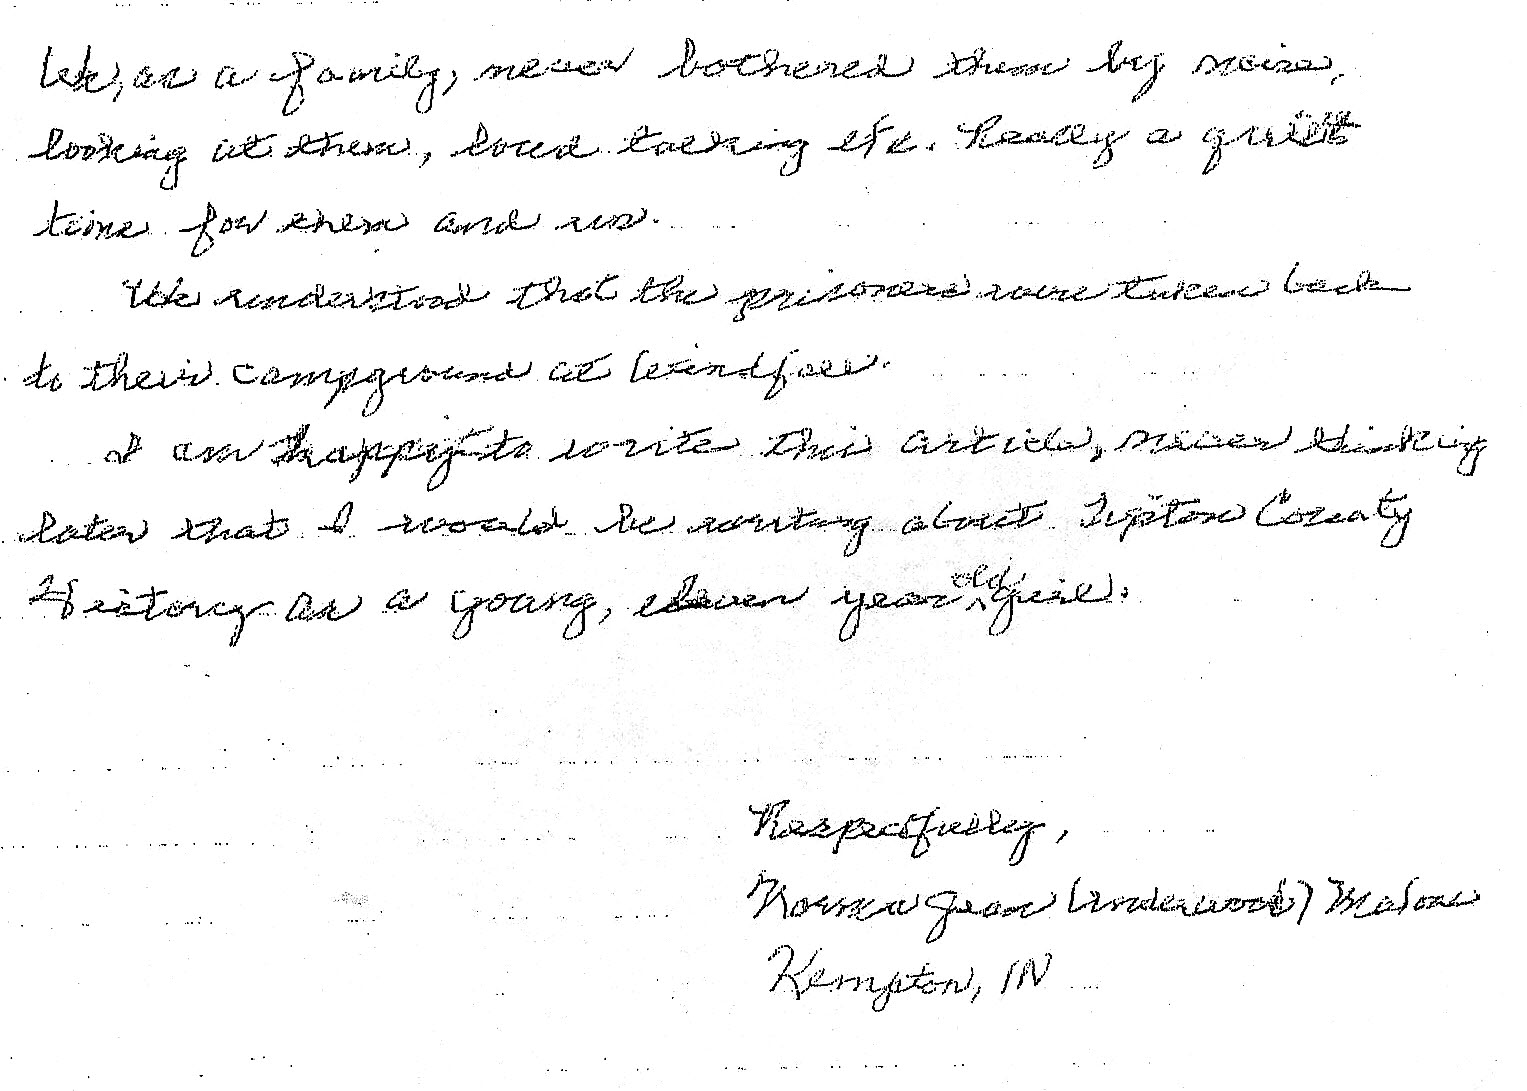 We, as a family, never bothered them by noise,
looking at them, loud talking etc. Really a quiet
time for them and us.
We understood that the prisoners were taken back
to their campground at Windfall.
I am happy to write this article, never thinking
later that I would be writing about Tipton County
History as a young, eleven year old girl.
Respectfully,
Norma Jean (Underwood) Malone
Kempton, IN